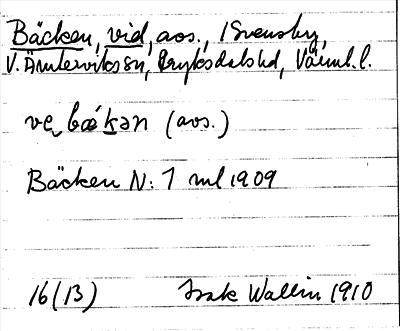 Bäcken, vid, avs., i Svensby,
V. Ämtervik sn, Fryksdals hd, Värml. l.
ve bǽkən (avs.)
Bäcken N: 1 ml 1909
16 (B) Isak Wallin 1910